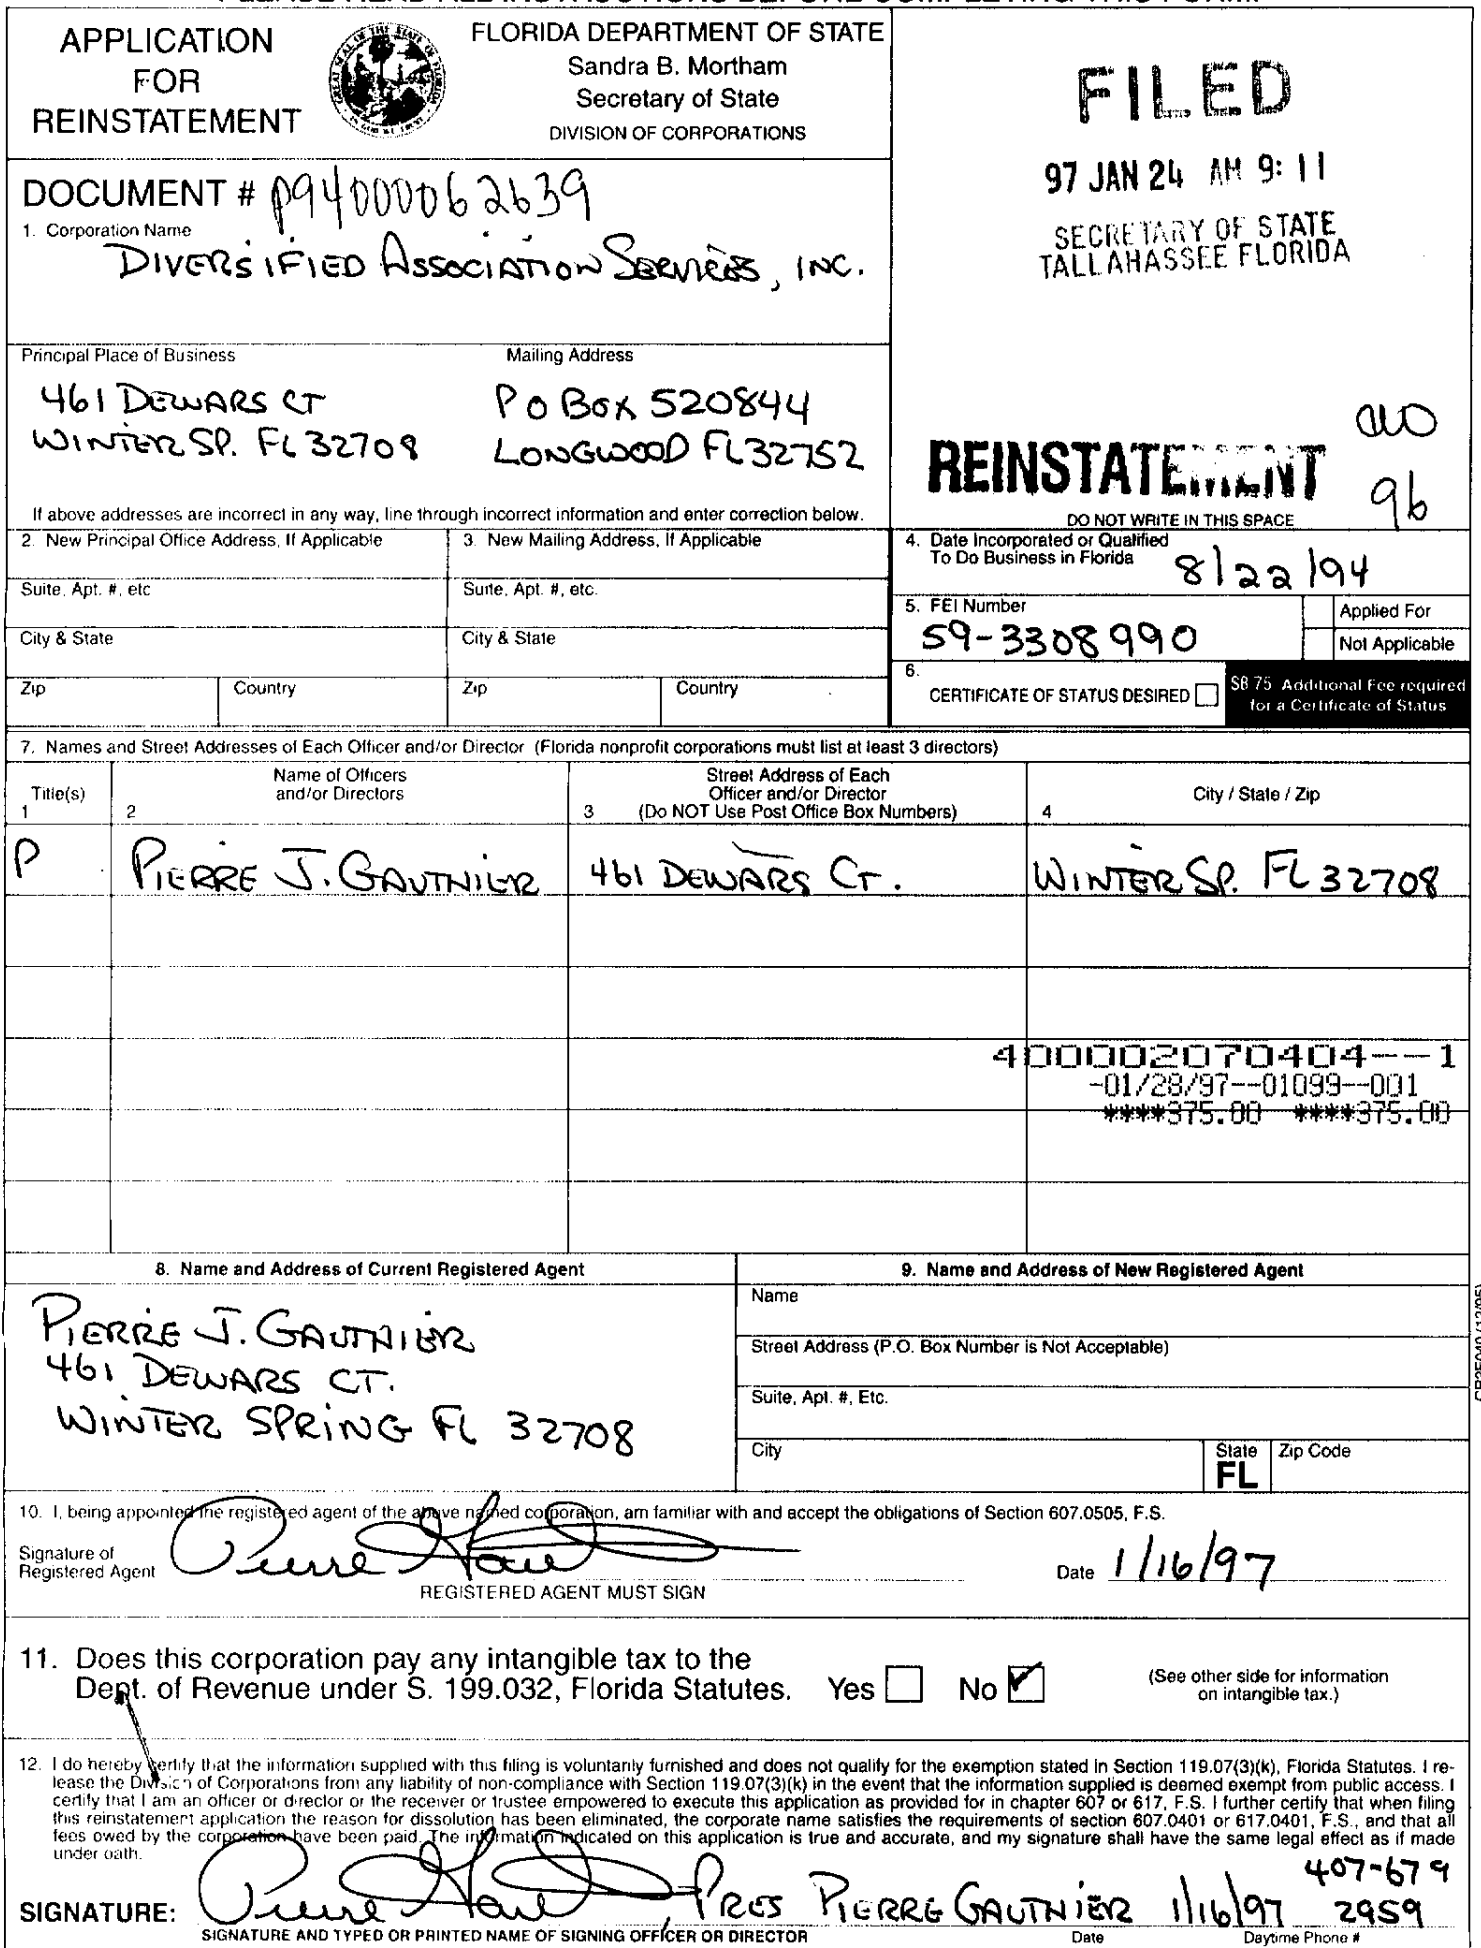 PLEASE READ ALL INSTRUCTIONS BEFORE COMPLETING THIS FORM
APPLICATION
FOR
REINSTATEMENT
FLORIDA DEPARTMENT OF STATE
Sandra B. Mortham
Secretary of State
DIVISION OF CORPORATIONS
FILED
97 JAN 24 AM 9: 11
SECRETARY OF STATE
TALLAHASSEE FLORIDA
DOCUMENT # P94000062639
1. Corporation Name
DIVERSIFIED ASSOCIATION SERVICES, INC.
Principal Place of Business Mailing Address
461 DEWARS CT P O BOX 520844
WINTER SP. FL 32708 LONGWOOD FL 32752
REINSTATEMENT
96
If above addresses are incorrect in any way, line through incorrect information and enter correction below.
DO NOT WRITE IN THIS SPACE
2. New Principal Office Address, If Applicable 3. New Mailing Address, If Applicable
4. Date Incorporated or Qualified
To Do Business in Florida 8/22/94
Suite, Apt. #, etc Suite, Apt. #, etc.
5. FEI Number Applied For
59-3308990
City & State City & State Not Applicable
6.
CERTIFICATE OF STATUS DESIRED
$8 75 Additional Fee required
for a Certificate of Status
Zip Country Zip Country
7. Names and Street Addresses of Each Officer and/or Director (Florida nonprofit corporations must list at least 3 directors)
Title(s) Name of Officers and/or Directors Street Address of Each Officer and/or Director (Do NOT Use Post Office Box Numbers) City / State / Zip
1 2 3 4
P PIERRE J. GAUTHIER 461 DEWARS CT. WINTER SP. FL 32708
400002070404--1
-01/28/97--01099--001
****375.00 ****375.00
8. Name and Address of Current Registered Agent 9. Name and Address of New Registered Agent
PIERRE J. GAUTHIER
461 DEWARS CT.
WINTER SPRING FL 32708
Name
Street Address (P.O. Box Number is Not Acceptable)
Suite, Apt. #, Etc.
City State Zip Code
FL
10. I, being appointed the registered agent of the above named corporation, am familiar with and accept the obligations of Section 607.0505, F.S.
Signature of
Registered Agent Date 1/16/97
REGISTERED AGENT MUST SIGN
11. Does this corporation pay any intangible tax to the
Dept. of Revenue under S. 199.032, Florida Statutes. Yes No
(See other side for information
on intangible tax.)
12. I do hereby certify that the information supplied with this filing is voluntarily furnished and does not qualify for the exemption stated in Section 119.07(3)(k), Florida Statutes. I re-
lease the Division of Corporations from any liability of non-compliance with Section 119.07(3)(k) in the event that the information supplied is deemed exempt from public access. I
certify that I am an officer or director or the receiver or trustee empowered to execute this application as provided for in chapter 607 or 617, F.S. I further certify that when filing
this reinstatement application the reason for dissolution has been eliminated, the corporate name satisfies the requirements of section 607.0401 or 617.0401, F.S., and that all
fees owed by the corporation have been paid. The information indicated on this application is true and accurate, and my signature shall have the same legal effect as if made
under oath.
SIGNATURE: , PRES PIERRE GAUTHIER 1/16/97 407-679
2959
SIGNATURE AND TYPED OR PRINTED NAME OF SIGNING OFFICER OR DIRECTOR Date Daytime Phone #